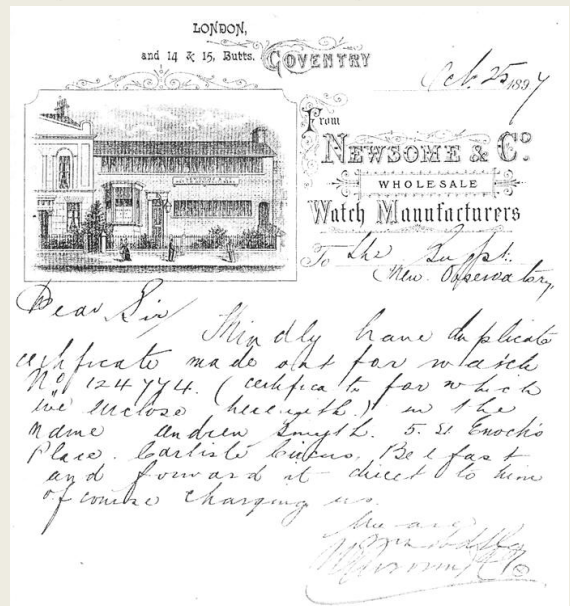 LONDON,
and 14 & 15, Butts. COVENTRY
Oct. 25 1897
From
NEWSOME & Co.
WHOLESALE
Watch Manufacturers
To the Supt.
Kew. Observatory,
Dear Sir/
Kindly have duplicate
certificate made out for watch
No 124774. (certificate for which
we enclose herewith.) in the
name andrew Smyth. 5. St. Enoch's
Place. Carlisle Circus. Belfast
and forward it direct to him
of course charging us.
We are
Newsome & Co